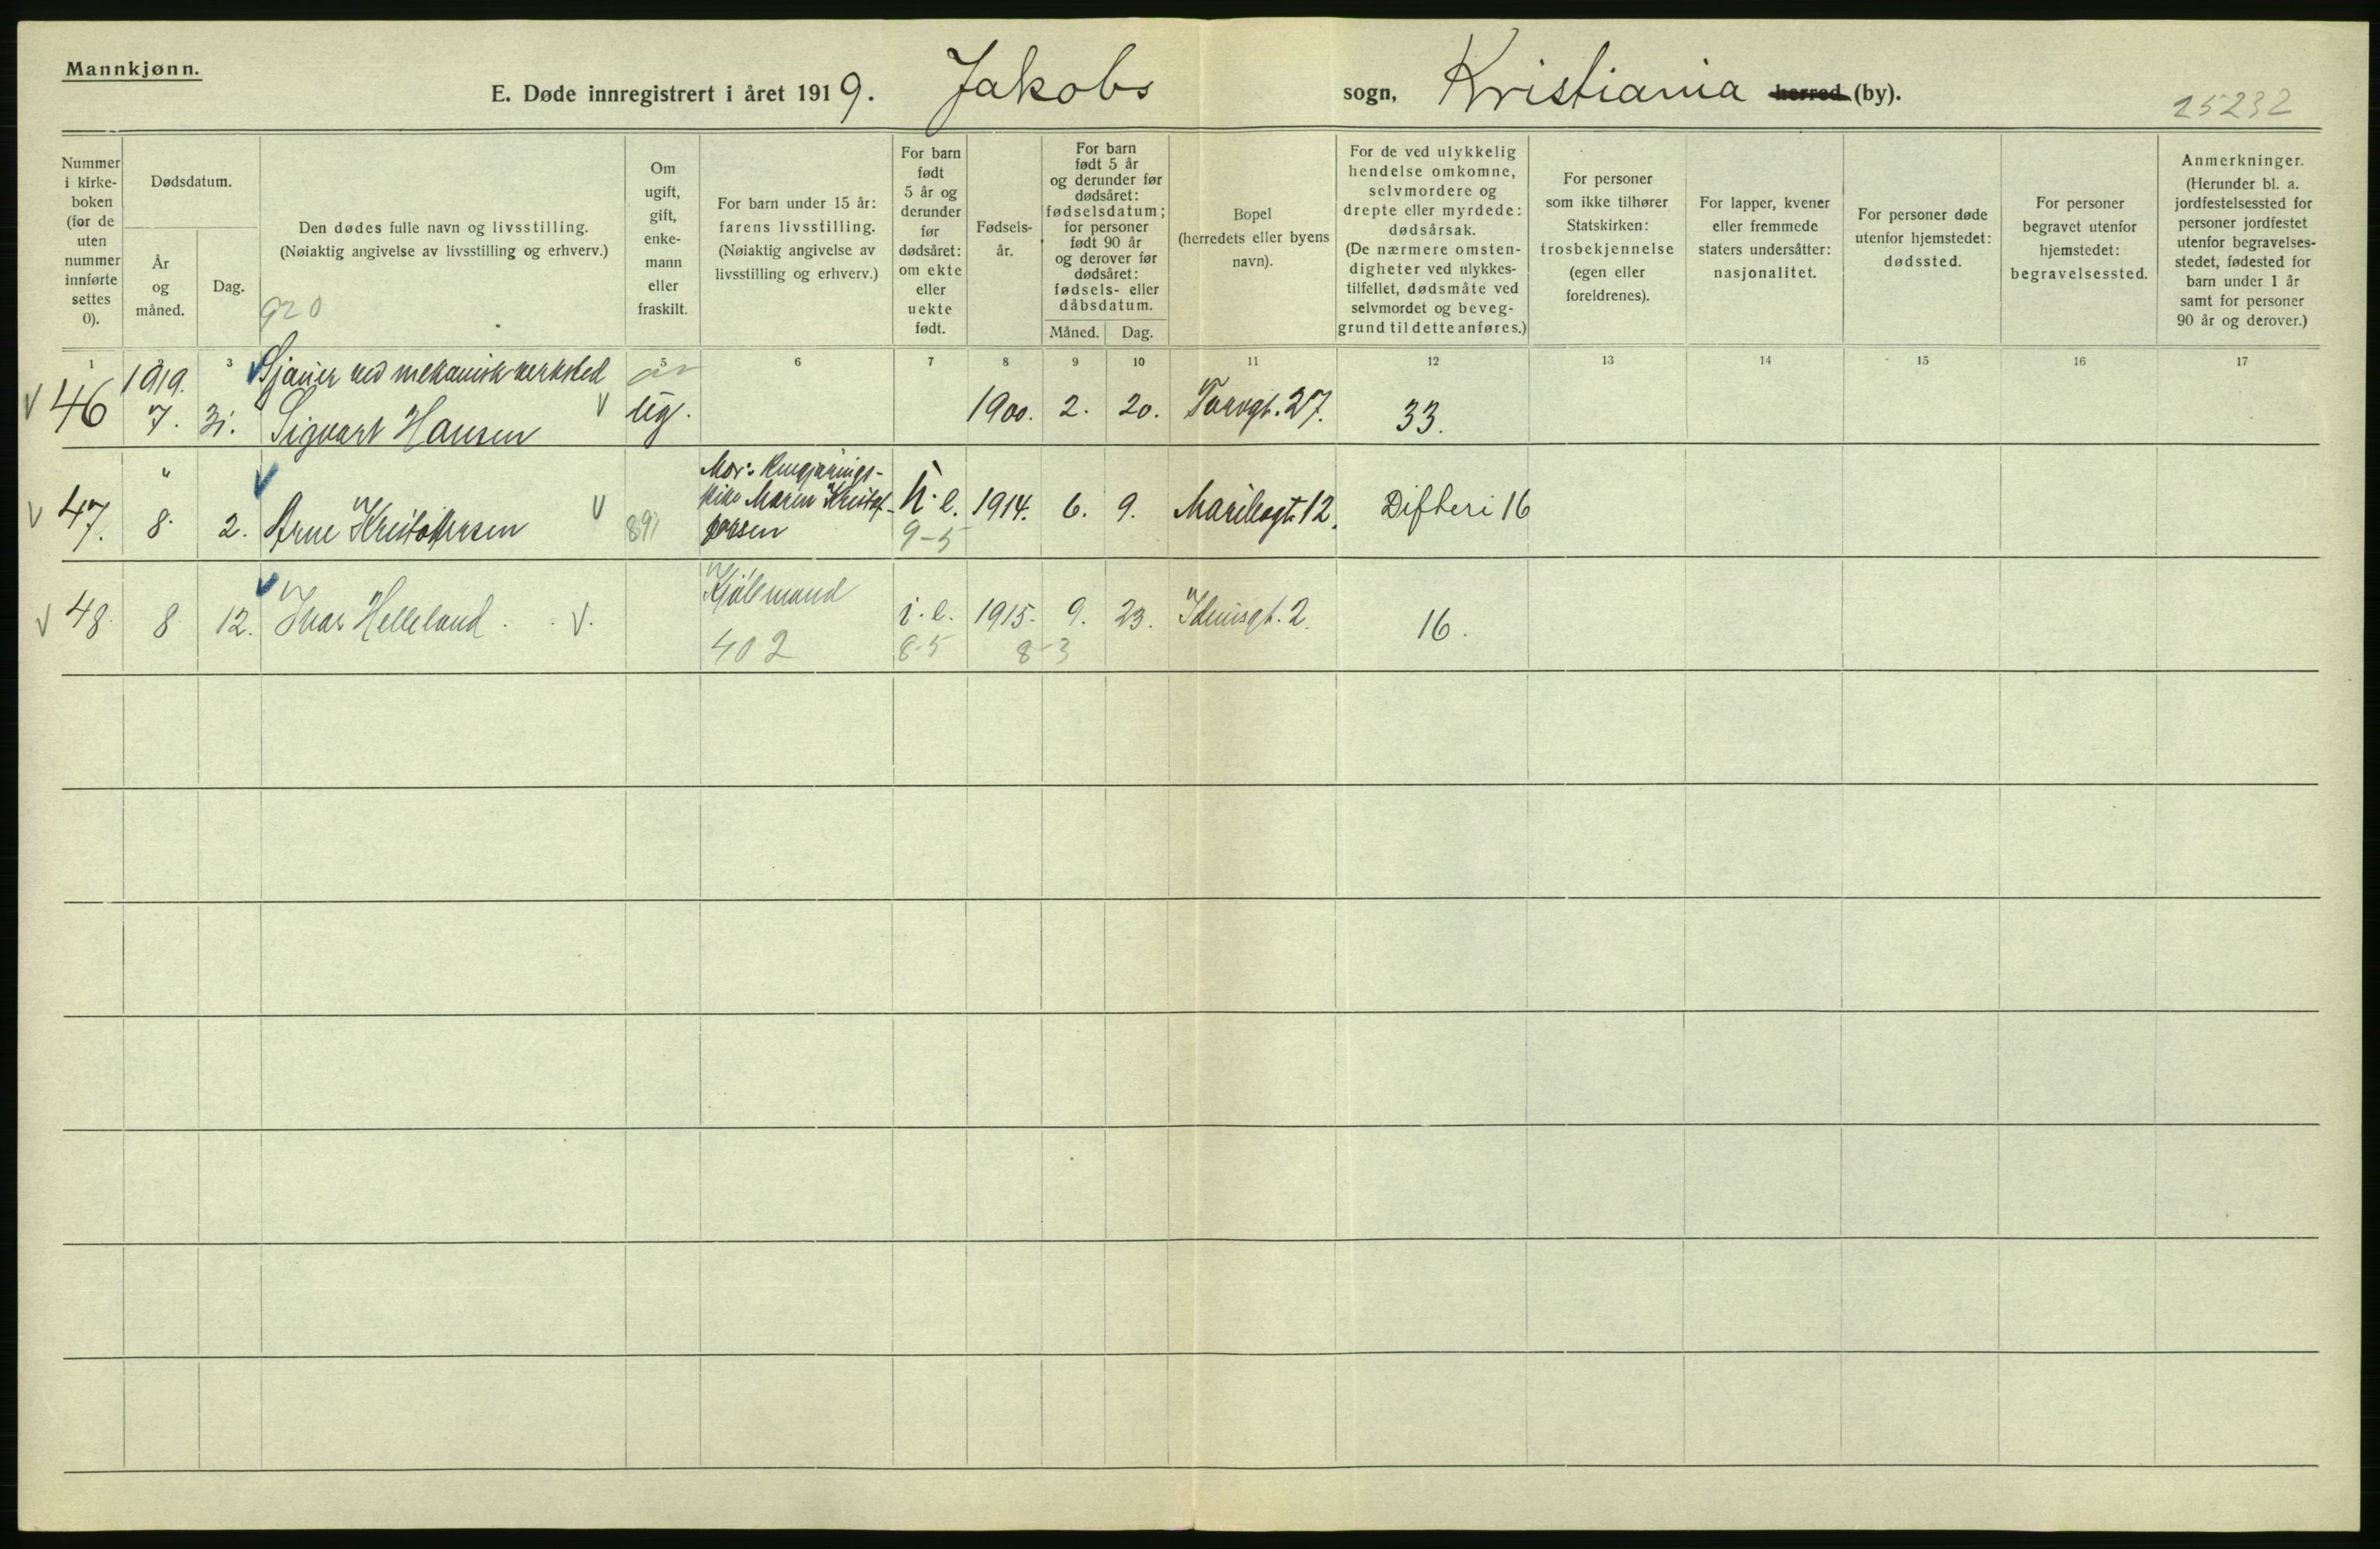 Mannkjønn.
E. Døde innregistrert i året 1919. Jakobs sogn, Kristiania herred (by).
25232
Nummer i kirke- boken (for de uten nummer innførte settes 0).
Dødsdatum.
År og måned.
Dag.
Den dødes fulle navn og livsstilling.
(Nøiaktig angivelse av livsstilling og erhverv.)
920
Om ugift, gift, enke- mann eller fraskilt.
For barn under 15 år: farens livsstilling.
(Nøiaktig angivelse av livsstilling og erhverv.)
For barn født 5 år og derunder før dødsåret: om ekte eller uekte født.
Fødsels- år.
For barn født 5 år og derunder før dødsåret: fødselsdatum; for personer født 90 år og derover før dødsåret: fødsels- eller dåbsdatum.
Måned. Dag.
Bopel (herredets eller byens navn).
For de ved ulykkelig hendelse omkomne, selvmordere og drepte eller myrdede: dødsårsak.
(De nærmere omsten- digheter ved ulykkes- tilfellet, dødsmåte ved selvmordet og beveg- grund til dette anføres.)
For personer som ikke tilhører Statskirken: trosbekjennelse (egen eller foreldrenes).
For lapper, kvener eller fremmede staters undersåtter: nasjonalitet.
For personer døde utenfor hjemstedet: dødssted.
For personer begravet utenfor hjemstedet: begravelsessted.
Anmerkninger.
(Herunder bl. a. jordfestelsessted for personer jordfestet utenfor begravelses- stedet, fødested for barn under 1 år samt for personer 90 år og derover.)
1 3 5 6 7 8 9 10 11 12 13 14 15 16 17
1919. Sjauer ved mekanisk verksted
46 7. 31. Sigvart Hansen ug. 1900. 2. 20. Torvgt. 27. 33.
" Mor: Rengjørings-
47. 8. 2. Arne Kristoffersen 891 pike Maren Kristof- u. e. 1914. 6. 9. Maribogt. 12. Difteri 16
fersen 9-5
Kjølemand
48. 8 12. Ivar Helleland. i. e. 1915. 9. 23. Idunsgt. 2. 16.
402 8-5 8-3